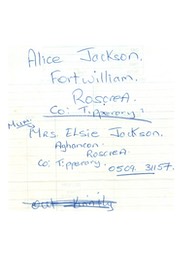 Alice Jackson.
Fortwilliam.
Roscrea.
Co: Tipperary.
Mum:
Mrs Elsie Jackson.
Aghancon.
Roscrea
Co: Tipperary.
0509. 31157.